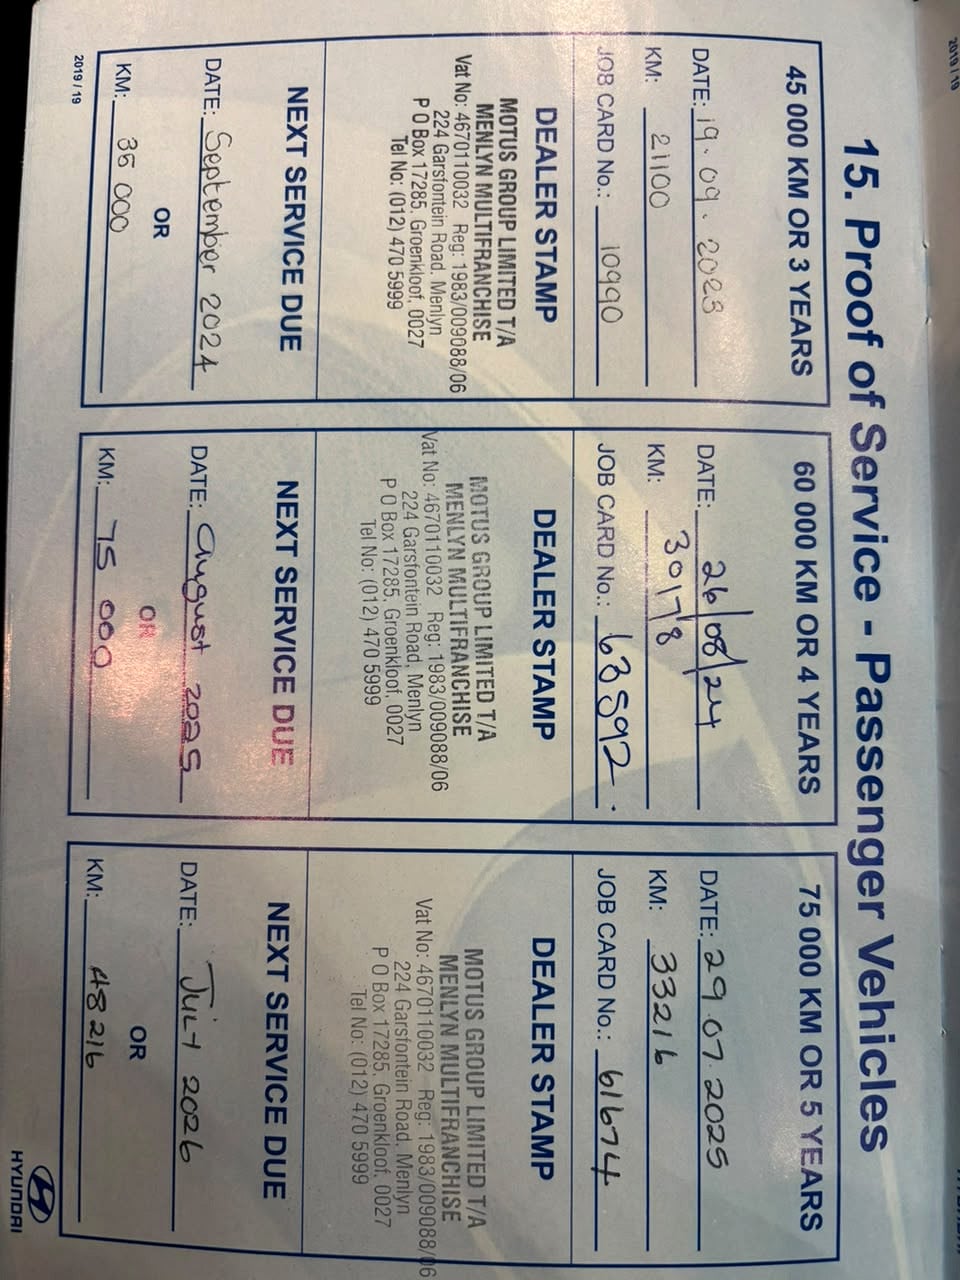 15. Proof of Service - Passenger Vehicles
45 000 KM OR 3 YEARS
DATE: 19.09.2023
KM: 21100
JOB CARD No.: 10990
DEALER STAMP
MOTUS GROUP LIMITED T/A
MENLYN MULTIFRANCHISE
Vat No: 4670110032 Reg: 1983/009088/06
224 Garsfontein Road, Menlyn
P O Box 17285, Groenkloof, 0027
Tel No: (012) 470 5999
NEXT SERVICE DUE
DATE: September 2024
OR
KM: 36 000
2019 / 19
60 000 KM OR 4 YEARS
DATE: 26/08/24
KM: 30178
JOB CARD No.: 63592.
DEALER STAMP
MOTUS GROUP LIMITED T/A
MENLYN MULTIFRANCHISE
Vat No: 4670110032 Reg: 1983/009088/06
224 Garsfontein Road, Menlyn
P O Box 17285, Groenkloof, 0027
Tel No: (012) 470 5999
NEXT SERVICE DUE
DATE: August 2025
OR
KM: 75 000
75 000 KM OR 5 YEARS
DATE: 29.07.2025
KM: 33216
JOB CARD No.: 61674
DEALER STAMP
MOTUS GROUP LIMITED T/A
MENLYN MULTIFRANCHISE
Vat No: 4670110032 Reg: 1983/009088/06
224 Garsfontein Road, Menlyn
P O Box 17285, Groenkloof, 0027
Tel No: (012) 470 5999
NEXT SERVICE DUE
DATE: JULY 2026
OR
KM: 48216
HYUNDAI
2019 / 19